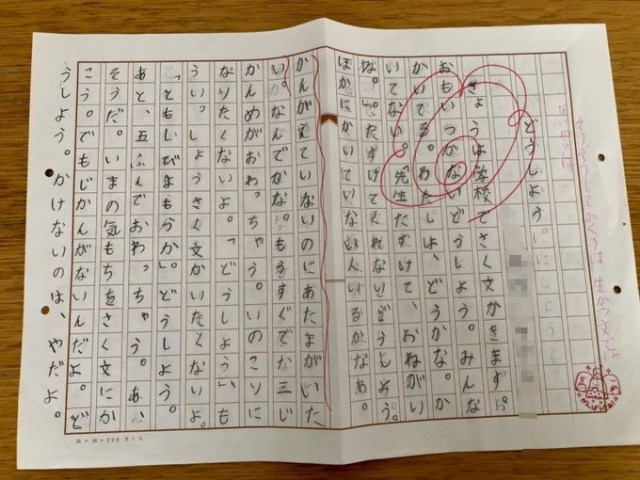 どうしよう。
きょうは学校でさく文かきます。
おもいつかないどうしよう。みんな
かいてる。わたしは、どうかな。か
いてない。先生たすけて、おねがい
な。たすけてくれないどうしよう。
ほかにかいていない人いるかなあ。
かんがえていないのにあたまがいた
い。なんでかな。もうすぐで、三じ
かんめがおわっちゃう。いのこりに
なりたくないよ。「どうしよう」も
ういっしょうさく文かいたくないよ。
どうしよう。
あと、五ふんでおわっちゃう。あ、
そうだ。いまの気もちをさく文にか
こう。でもじかんがないんだよ。ど
うしよう。かけないのは、やだよ。